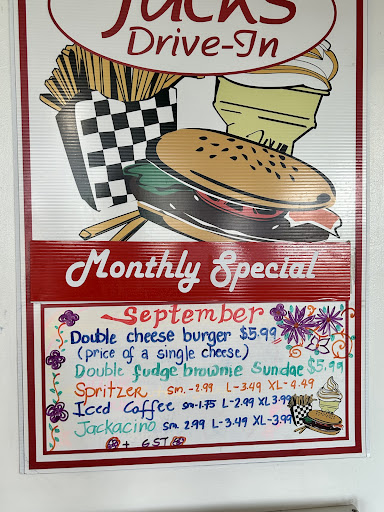 Jacks
Drive-In
Monthly Special
September
Double cheese burger $5.99
(price of a single cheese)
Double fudge brownie Sundae $5.99
Spritzer sm. - 2.99 L - 3.49 XL - 4.49
Iced Coffee sm - 1.75 L - 2.99 XL 3.99
Jackacino sm. 2.99 L - 3.49 XL - 3.99
+ GST